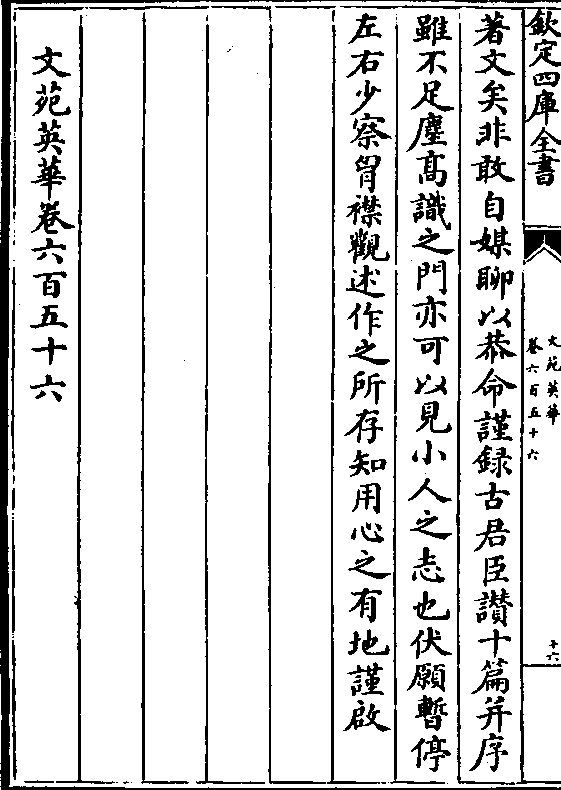 欽定四庫全書
文苑英華
卷六百五十六
十六
著文矣非敢自媒聊以恭命謹録古君臣讃十篇并序
雖不足塵髙識之門亦可以見小人之志也伏願暫停
左右少察胷襟觀述作之所存知用心之有地謹啟
文苑英華卷六百五十六